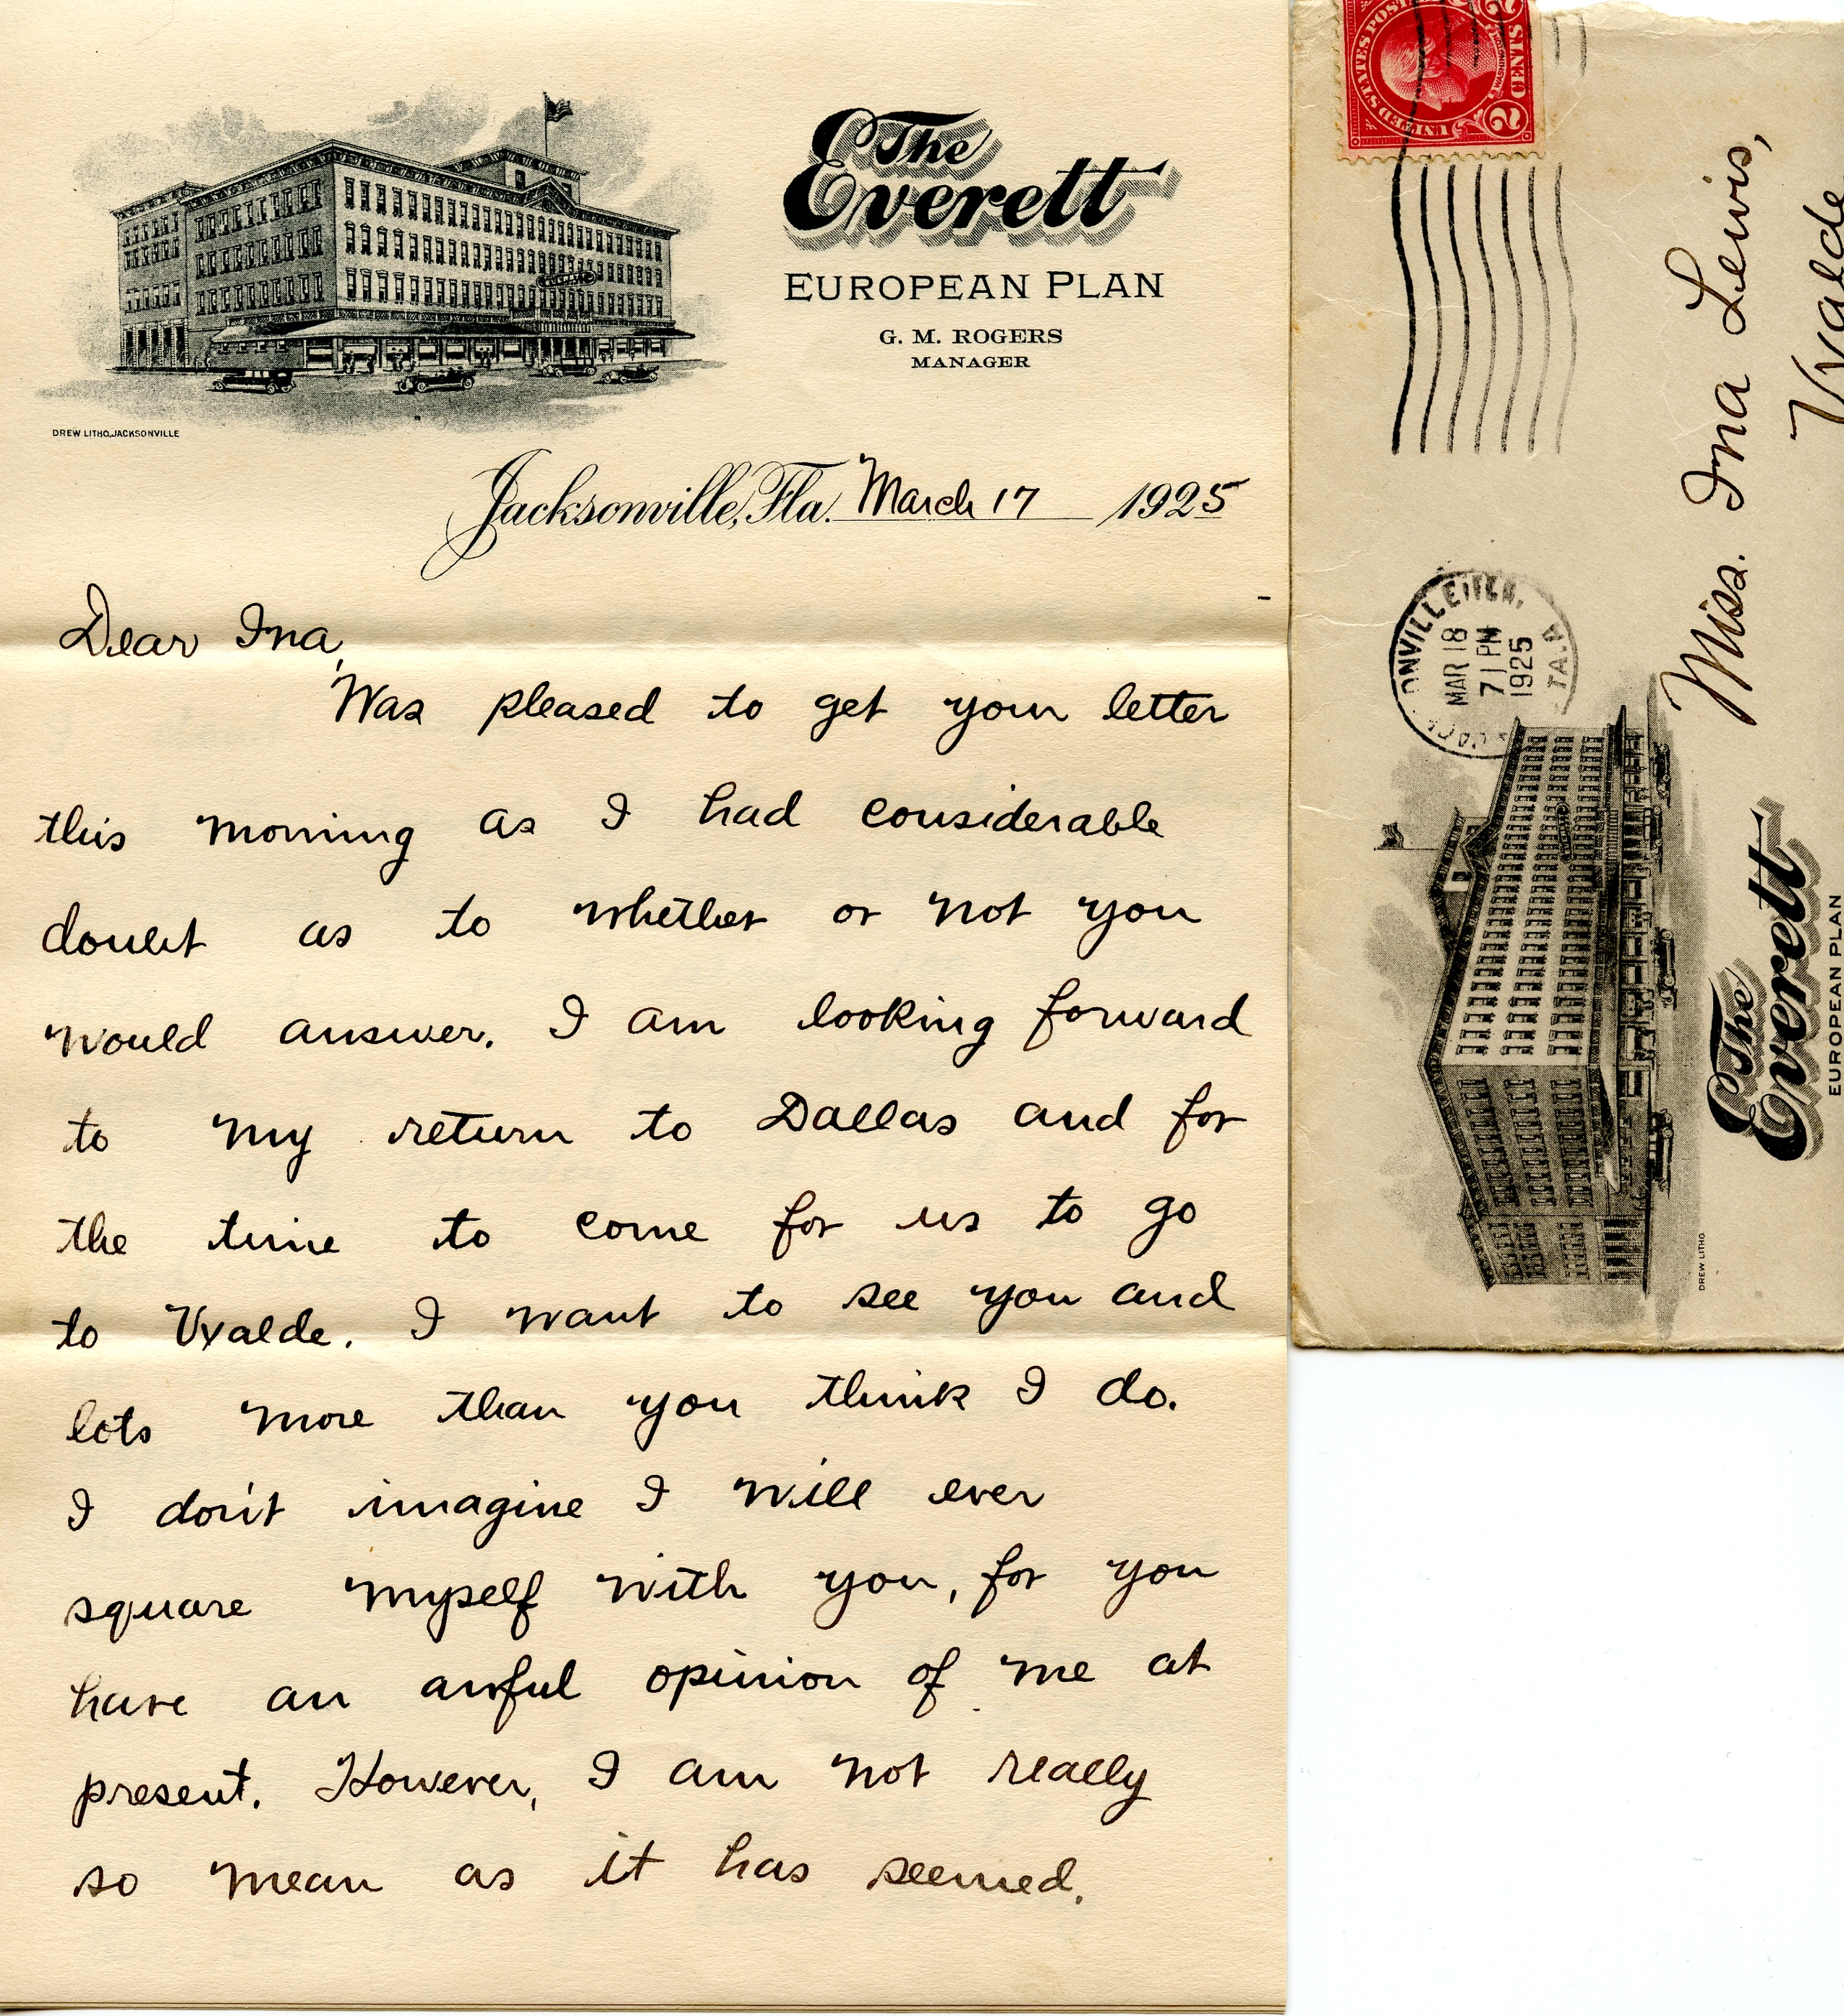 The
Everett
EUROPEAN PLAN
G. M. ROGERS
MANAGER
DREW LITHO, JACKSONVILLE
Jacksonville, Fla. March 17 1925
Dear Ina,
Was pleased to get your letter
this morning as I had considerable
doubt as to whether or not you
would answer. I am looking forward
to my return to Dallas and for
the time to come for us to go
to Uvalde. I want to see you and
lots more than you think I do.
I don't imagine I will ever
square myself with you, for you
have an awful opinion of me at
present. However, I am not really
so mean as it has seemed.
UNITED STATES POSTAGE
WASHINGTON
2 CENTS 2
MAR 18
7 PM
1925
Miss. Ina Lewis,
Uvalde
The
Everett
EUROPEAN PLAN
DREW LITHO